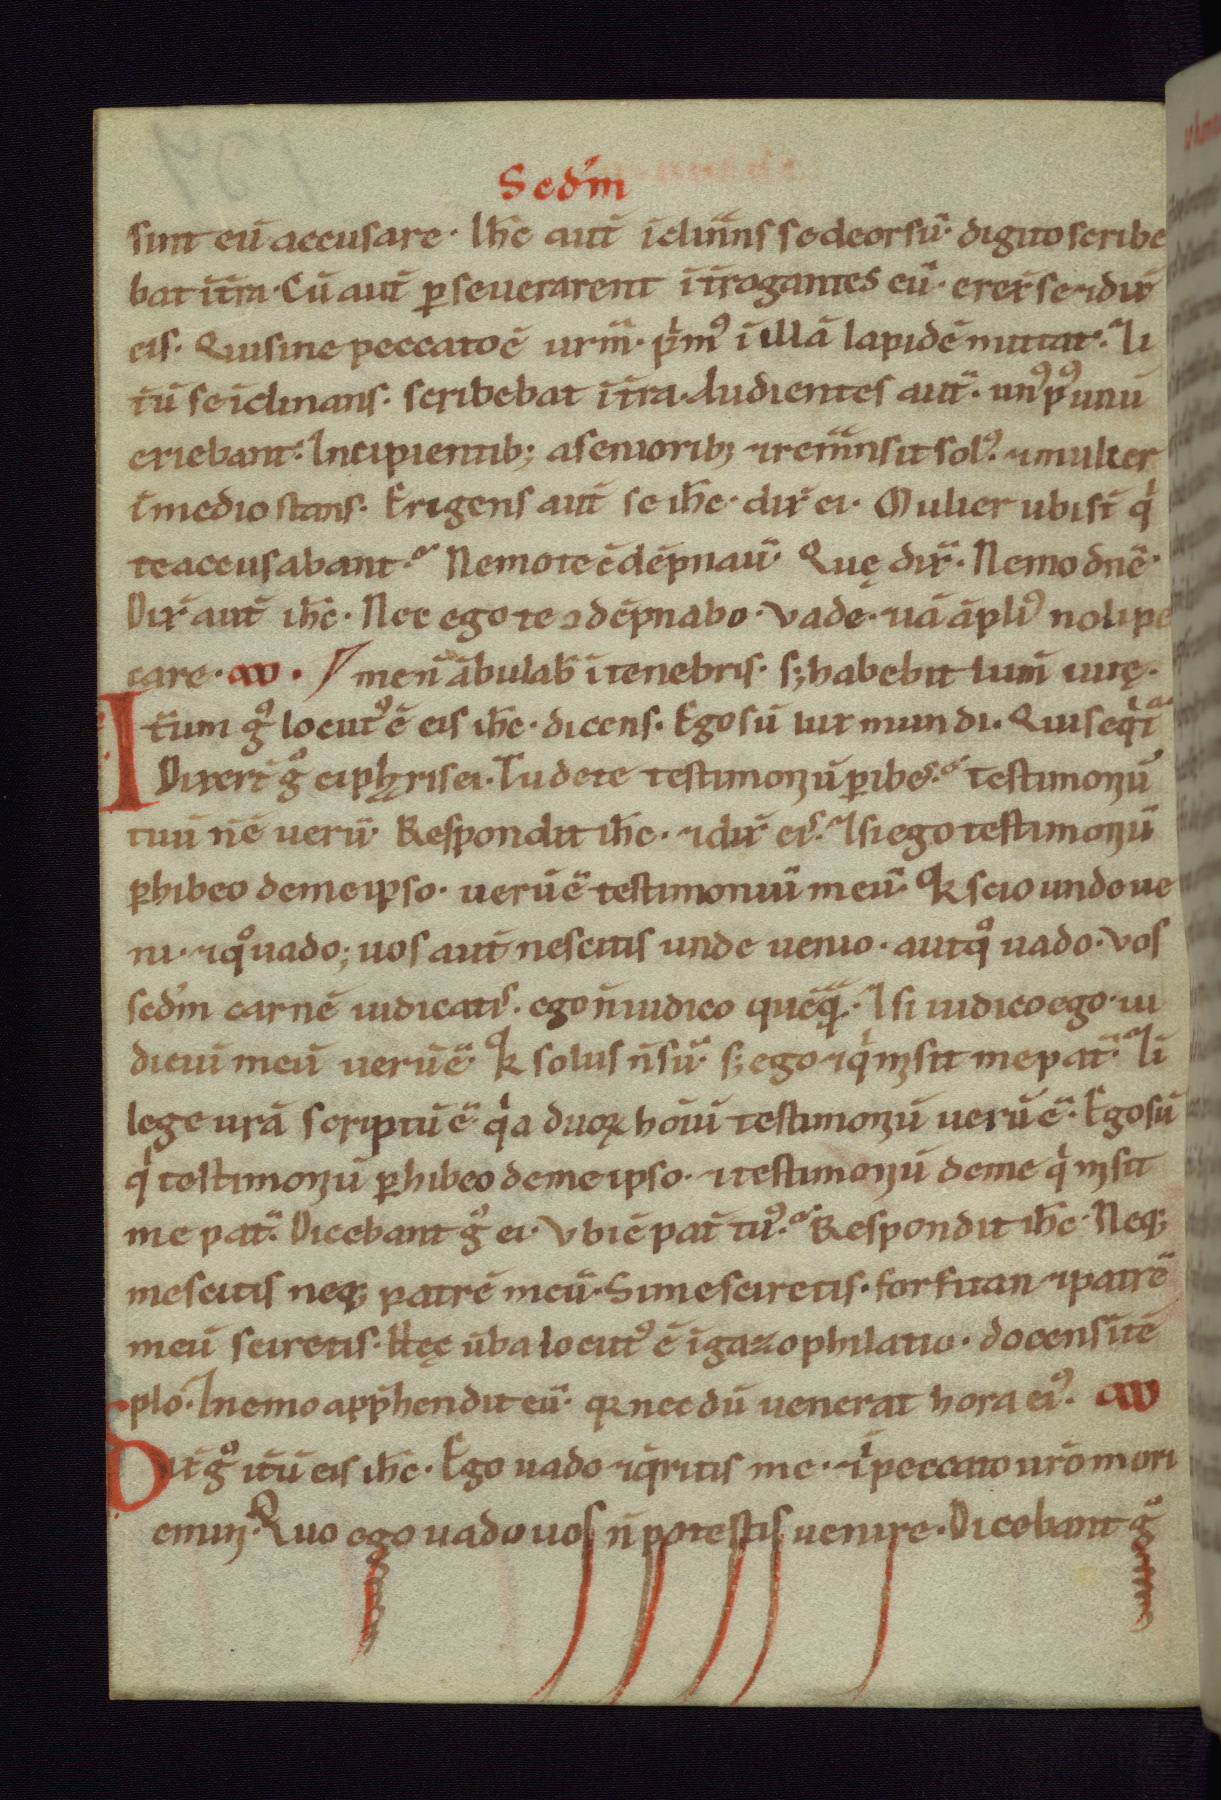 Sed̄m
sunt eū accusare· Ih̄c aut̄ iclin̄ns se deorsū· digito scribe
bat it̄ra· Cū aut̄ pseverarent it̄rogantes eū· erex̄ se ⁊ dix̄
eis· Qui sine peccato ē ur̄m· pͥm⁹ i illā lapidē mittat· ⁊ i
t̄ū se iclinans· scribebat i t̄ra· Audientes aut̄· un⁹ p⁹ unū
exiebant· Incipientib; a seniorib; ⁊ rem̄nsit sol⁹· ⁊ mulier
ī medio stans· Erigens aut̄ se ih̄c· dix̄ ei· Mulier ubi st̄ qͥ
te accusabant· Nemo te ꝯdēpnau̅· Quę dix̄· Nemo dn̄e·
Dix̄ aut̄ ih̄c· Nec ego te ꝯdēpnabo· Vade· ⁊ iā āpli⁹ noli pe
care· aω· men̄ ābulab̄ i tenebris· s; habebit lum̄ vitę·
It̄um gͦ locut⁹ ē eis ih̄c· dicens· Ego sū lux mundi· Qui seqͥt̄
Dixert̄ gͦ ei phȝrisei· Tu de te testimonȝū ꝑibes· testimonȝū
tuū n̄ ē verū· Respondit ih̄c· ⁊ dix̄ eis· ⁊ si ego testimonȝū
ꝑhibeo de me ipso· verū ē testimoniū meū· qꝛ scio unde ve
ni· ⁊ qͦ vado; vos aut̄ nescitis unde venio· aut qͦ vado· Vos
sed̄m carnē iudicatis· ego n̄ iudico quēqͣ· ⁊ si iudico ego· iu
diciū meū verū ē· qꝛ solus n̄ sū· s; ego ⁊ qͥ mȝsit me pat̄· ⁊ i
lege vrā scriptū ē· qͥa duoꝝ hoiū testimonȝū verū ē· Ego sū
qͥ testimonȝū ꝑhibeo de me ipso· ⁊ testimonȝū de me qͥ mȝsit
me pat̄· Dicebant gͦ ei· Vbi ē pat̄ tu⁹· Respondit ih̄c· Neq;
me scitis neq; patrē meū· Si me sciretis· forsitan ⁊ patrē
meū sciretis· Hęc ūba locut⁹ ē i gazophilatio· docens i tē
plo· ⁊ nemo app̄hendit eū· qꝛ nec dū venerat hora ei⁹· aω
Dix̄ gͦ it̄ū eis ih̄c· Ego vado ⁊ qͥritis me· ⁊ i peccato vr̄o mori
eminȝ· Quo ego vado vos n̄ potestis venire· Dicebant gͦ